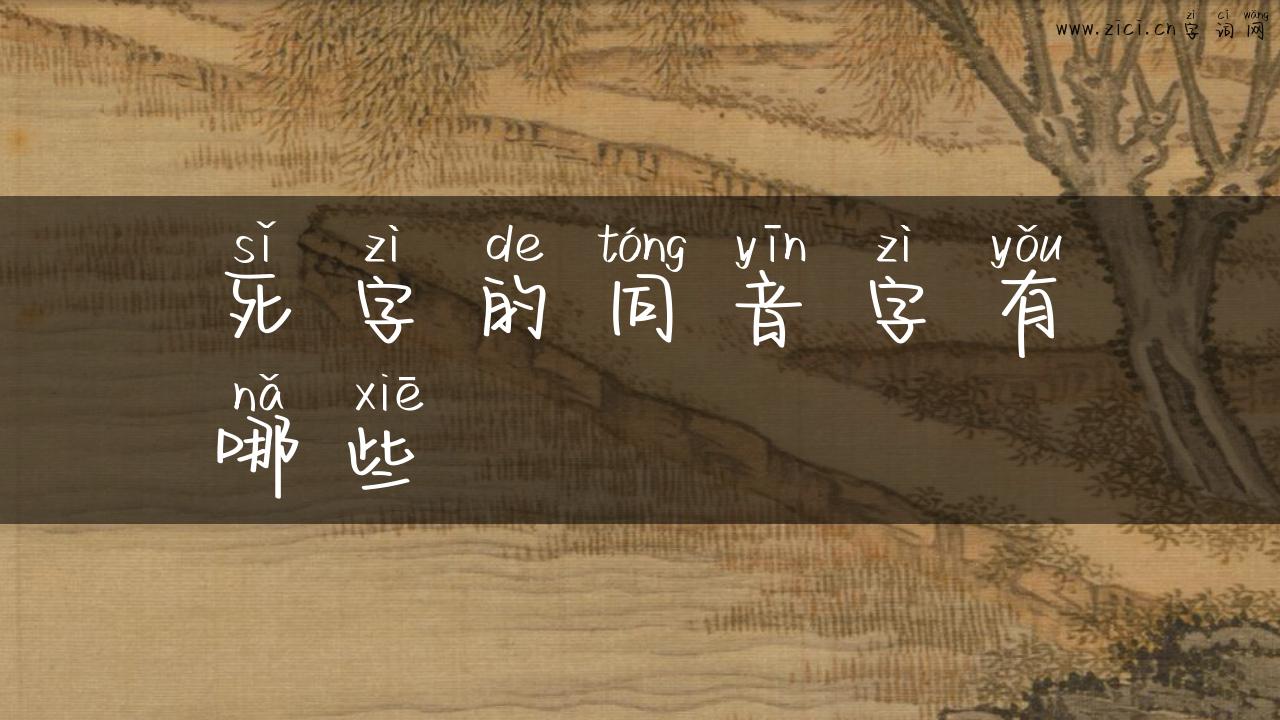 zì cí wǎng
www.zici.cn字词网
sǐ zì de tóng yīn zì yǒu
死字的同音字有
nǎ xiē
哪些